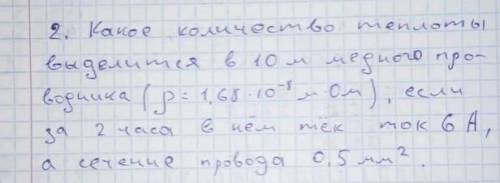 2. Какое количество теплоты
выделится в 10 м медного про-
водника (ρ = 1,68 · 10⁻⁸ м · Ом), если
за 2 часа в нём тёк ток 6 А,
а сечение провода 0,5 мм².